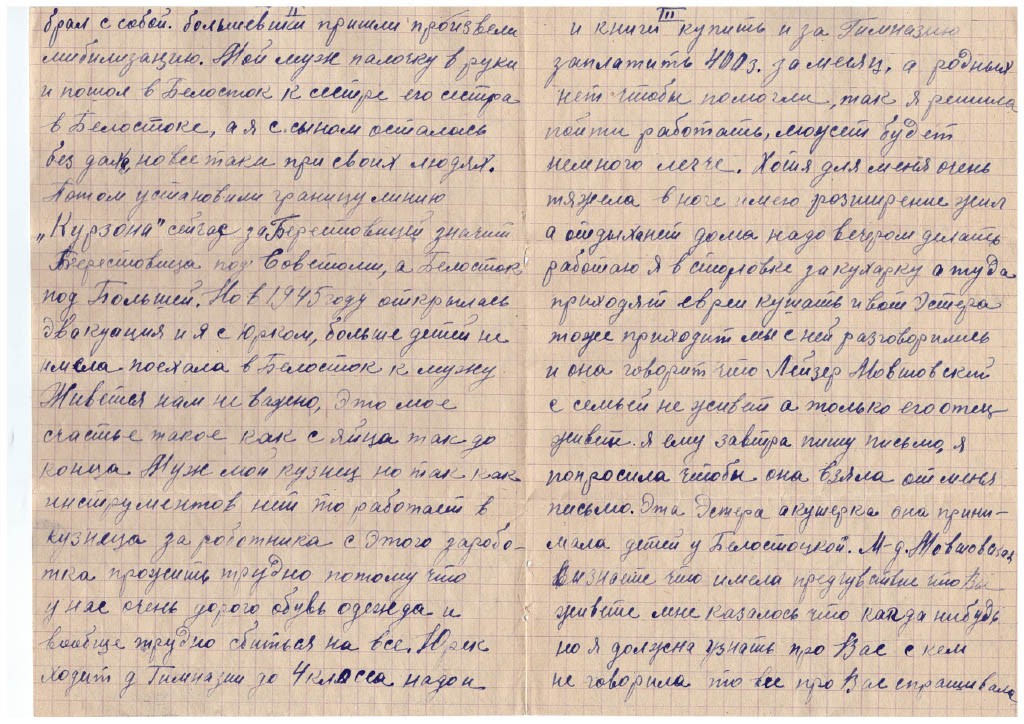 II
брал с собой. большевики пришли произвели
мибилизацию. Мой муж палочку в руки
и пошол в Белосток к сестре его сестра
в Белостоке, а я с сыном осталась
без дама, но все таки при своих людях.
Потом установили границу линию
„Курзона" сейчас за Берестовицей значит
Берестовица под Советами, а Белосток
под Польшей. Но в 1945 году открылась
Эвакуация и я с Юрком, больше детей не
имела поехала в Белосток к мужу.
Живется нам не важно, Это мое
счастье такое как с яйца так до
конца Муж мой кузнец но так как
инструментов нет то работает в
кузнеца за роботника с Этого заробо-
тка прожить трудно потому что
у нас очень дорого обувь одежда и
вообще трудно сбиться на все. Юрек
ходит д Гимназии до 4 класса надо и
III
и книги купить и за Гимназию
заплатить 400 з. за месяц, а родных
нет чтобы помогли, так я решила
пойти работать, может будет
немного легче. Хотя для меня очень
тяжела в ноге имею розширение жил
а отдыхает дома надо вечером делать
работаю я в столовке за кухарку а туда
приходят евреи кушать и вот Эстера
тоже приходит мы с ней разговорились
и она говорит что Лейзер Мовшовский
с семьей не живет а только его отец
живет. я ему завтра пишу письмо, я
попросила чтобы она взяла от меня
письмо. Эта Эстера акушерка она прини-
мала детей у Белостоцкой. М-д. Мовшовская
Вы знаете что имела предчувствие что Вы
живете мне казалось что когда нибудь
но я должна узнать про Вас с кем
не говорила то все про Вас спрашивала